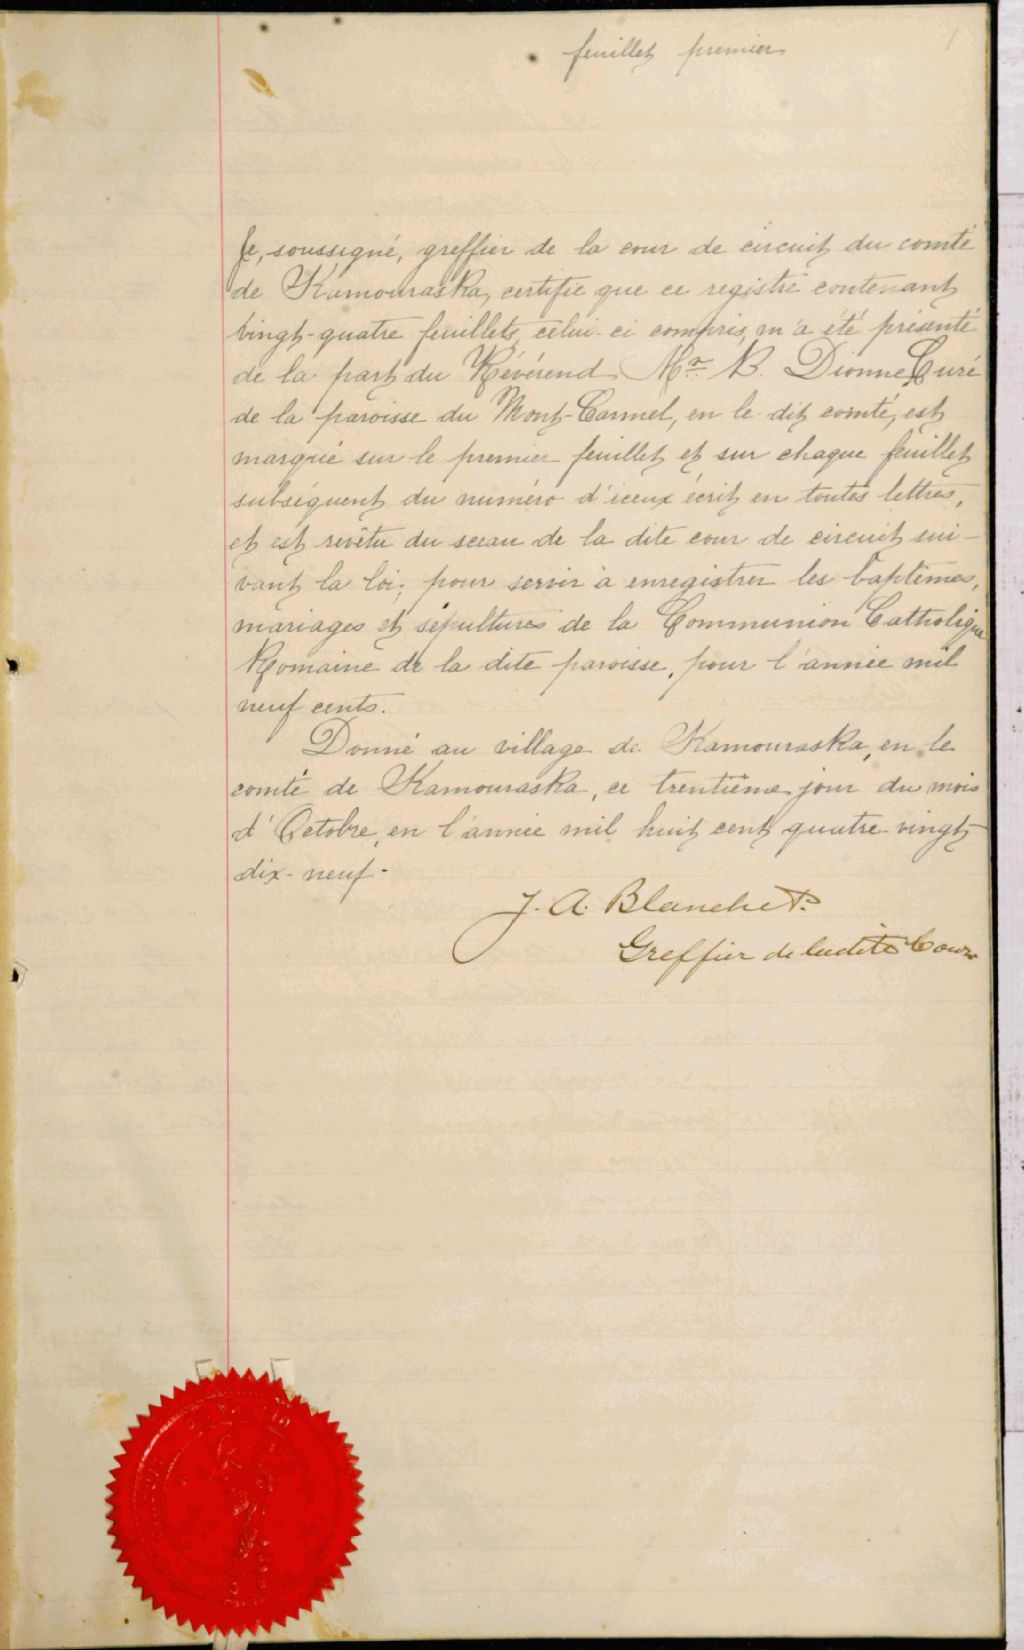 feuillet premier
1
Je, soussigné, greffier de la cour de circuit du comté
de Kamouraska, certifie que ce registre contenant
vingt-quatre feuillets, celui-ci compris, m'a été présenté
de la part du Révérend Mr. B. Dionne Curé
de la paroisse du Mont-Carmel, en le dit comté, est
marqué sur le premier feuillet et sur chaque feuillet
subséquent du numéro d'iceux écrit en toutes lettres,
et est revêtu du sceau de la dite cour de circuit sui-
vant la loi; pour servir à enregistrer les baptêmes,
mariages et sépultures de la Communion Catholique
Romaine de la dite paroisse, pour l'année mil
neuf cents.
Donné au village de Kamouraska, en le
comté de Kamouraska, ce trentième jour du mois
d'Octobre, en l'année mil huit cent quatre-vingt
dix-neuf.
J. A. Blanchet
Greffier de ladite Cour